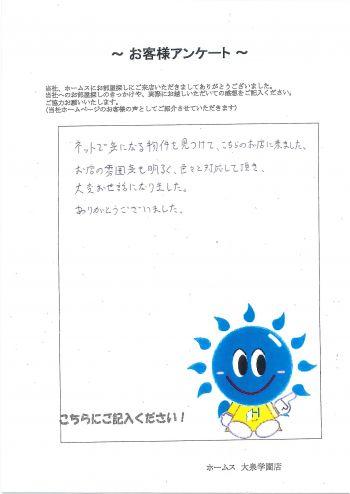 ～ お客様アンケート ～
当社、ホームスにお部屋探しにご来店いただきましてありがとうございました。
当社へのお部屋探しのきっかけや、実際にお越しいただいての感想をご記入ください。
ご協力お願いいたします。
(当社ホームページのお客様の声としてご紹介させていただきます)
ネットで気になる物件を見つけて、こちらのお店に来ました。
お店の雰囲気も明るく、色々と対応して頂き、
大変お世話になりました。
ありがとうございました。
H
こちらにご記入ください！
ホームス 大泉学園店